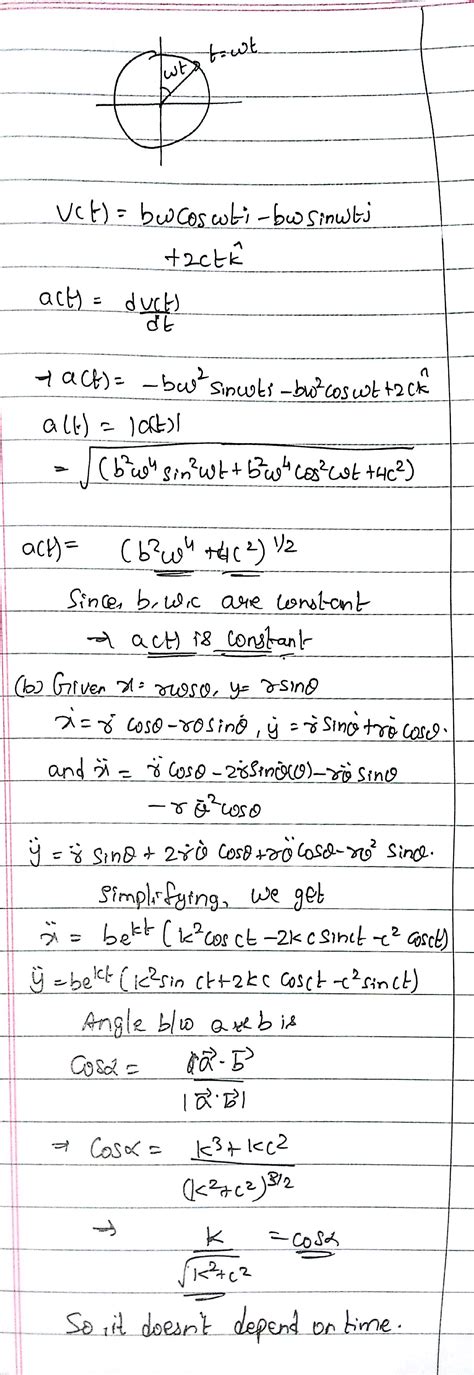 ωt t=ωt
v(t) = bω cos ωt i - bω sin ωt j
+ 2ct k̂
a(t) = dv(t)/dt
→ a(t) = -bω² sin ωt i - bω² cos ωt + 2c k̂
a(t) = |a(t)|
= √(b²ω⁴ sin² ωt + b²ω⁴ cos² ωt + 4c²)
a(t) = (b²ω⁴ + 4c²)^1/2
Since, b, ω, c are constant
→ a(t) is constant
(b) Given x = r cos θ, y = r sin θ
ẋ = ṙ cos θ - rθ̇ sin θ, ẏ = ṙ sin θ + rθ̇ cos θ.
and ẍ = r̈ cos θ - 2ṙ sin θ(θ̇) - rθ̈ sin θ
- r θ̇² cos θ
ÿ = r̈ sin θ + 2ṙθ̇ cos θ + rθ̈ cos θ - rθ̇² sin θ.
Simplifying, we get
ẍ = be^kt (k² cos ct - 2kc sin ct - c² cos ct)
ÿ = be^kt (k² sin ct + 2kc cos ct - c² sin ct)
Angle b/w a & b is
Cos α = a⃗ · b⃗ / |a⃗ · b⃗|
⇒ Cos α = k³ + kc² / (k² + c²)^3/2
→ k / √k² + c² = cos α
So, it doesn't depend on time.